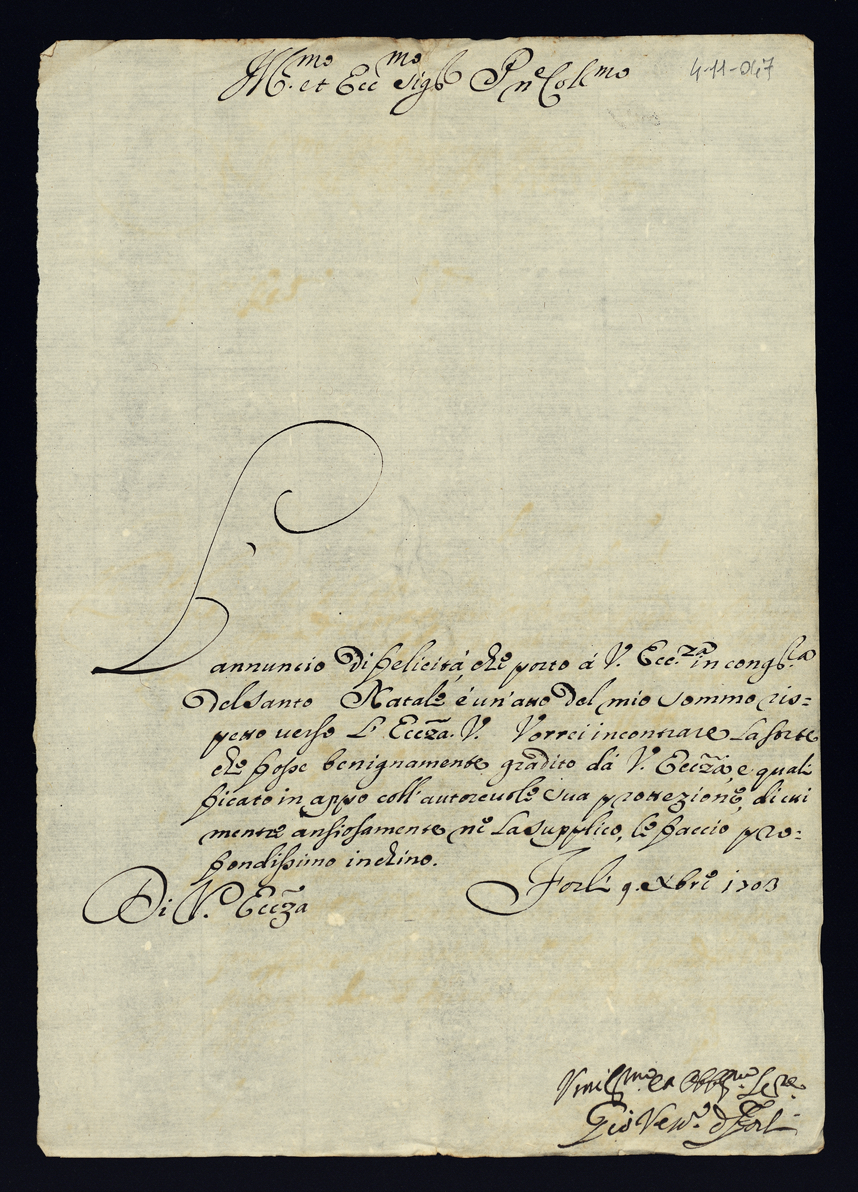 Ill.mo et Ecc.mo Sig.r P.ne Coll.mo
4-11-047
L'
annuncio di felicità, che porto á V. Ecc.za in cong.ra
del Santo Natale é un'atto del mio sommo ris=
petto verso L'Eccza. V. Vorrei incontrare La sorte
che fosse benignamente gradito dá V. Eccza, e quali
ficato in appo coll'autorevole sua protezione, di cui
mentre ansiosamente ne La supplico, le faccio pro=
fondissimo inchino.
Di V. Eccza
Forlì 9. Xbre 1703
Vmil.mo et Obb.mo Se.re
Gio Vesc.o di Forlì